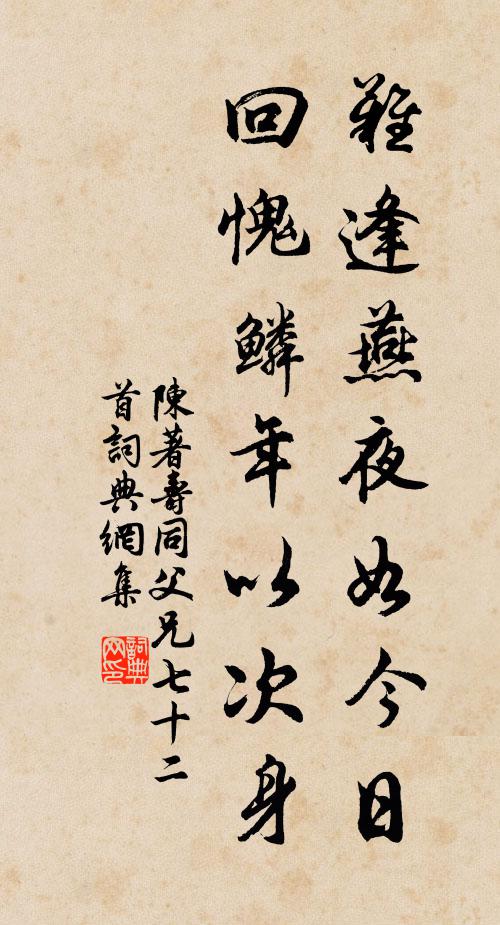 難逢燕夜如今日
回愧鱗年以次身
陳著壽同父兄七十二
首詞典網集
詞典网印